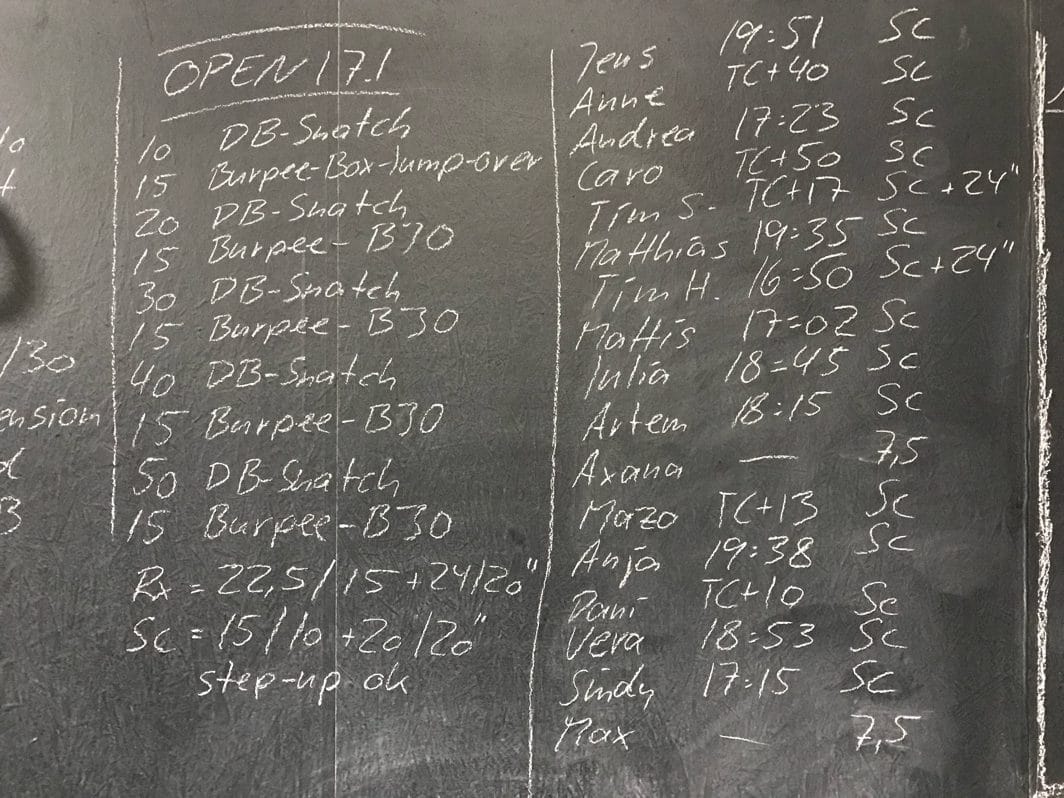 OPEN 17.1
10 DB-Snatch
15 Burpee-Box-Jump-over
20 DB-Snatch
15 Burpee-BJO
30 DB-Snatch
15 Burpee-BJO
40 DB-Snatch
15 Burpee-BJO
50 DB-Snatch
15 Burpee-BJO
Rx = 22,5/15 + 24/20"
Sc = 15/10 + 20/20"
step-up ok
Jens 19:51 Sc
Anne TC+40 Sc
Andrea 17:23 Sc
Caro TC+50 Sc
Tim S. TC+17 Sc + 24"
Matthias 19:35 Sc
Tim H. 16:50 Sc + 24"
Mattis 17:02 Sc
Julia 18:45 Sc
Artem 18:15 Sc
Axana — 7,5
Mazo TC+13 Sc
Anja 19:38 Sc
Dani TC+10 Sc
Vera 18:53 Sc
Sindy 17:15 Sc
Max — 7,5